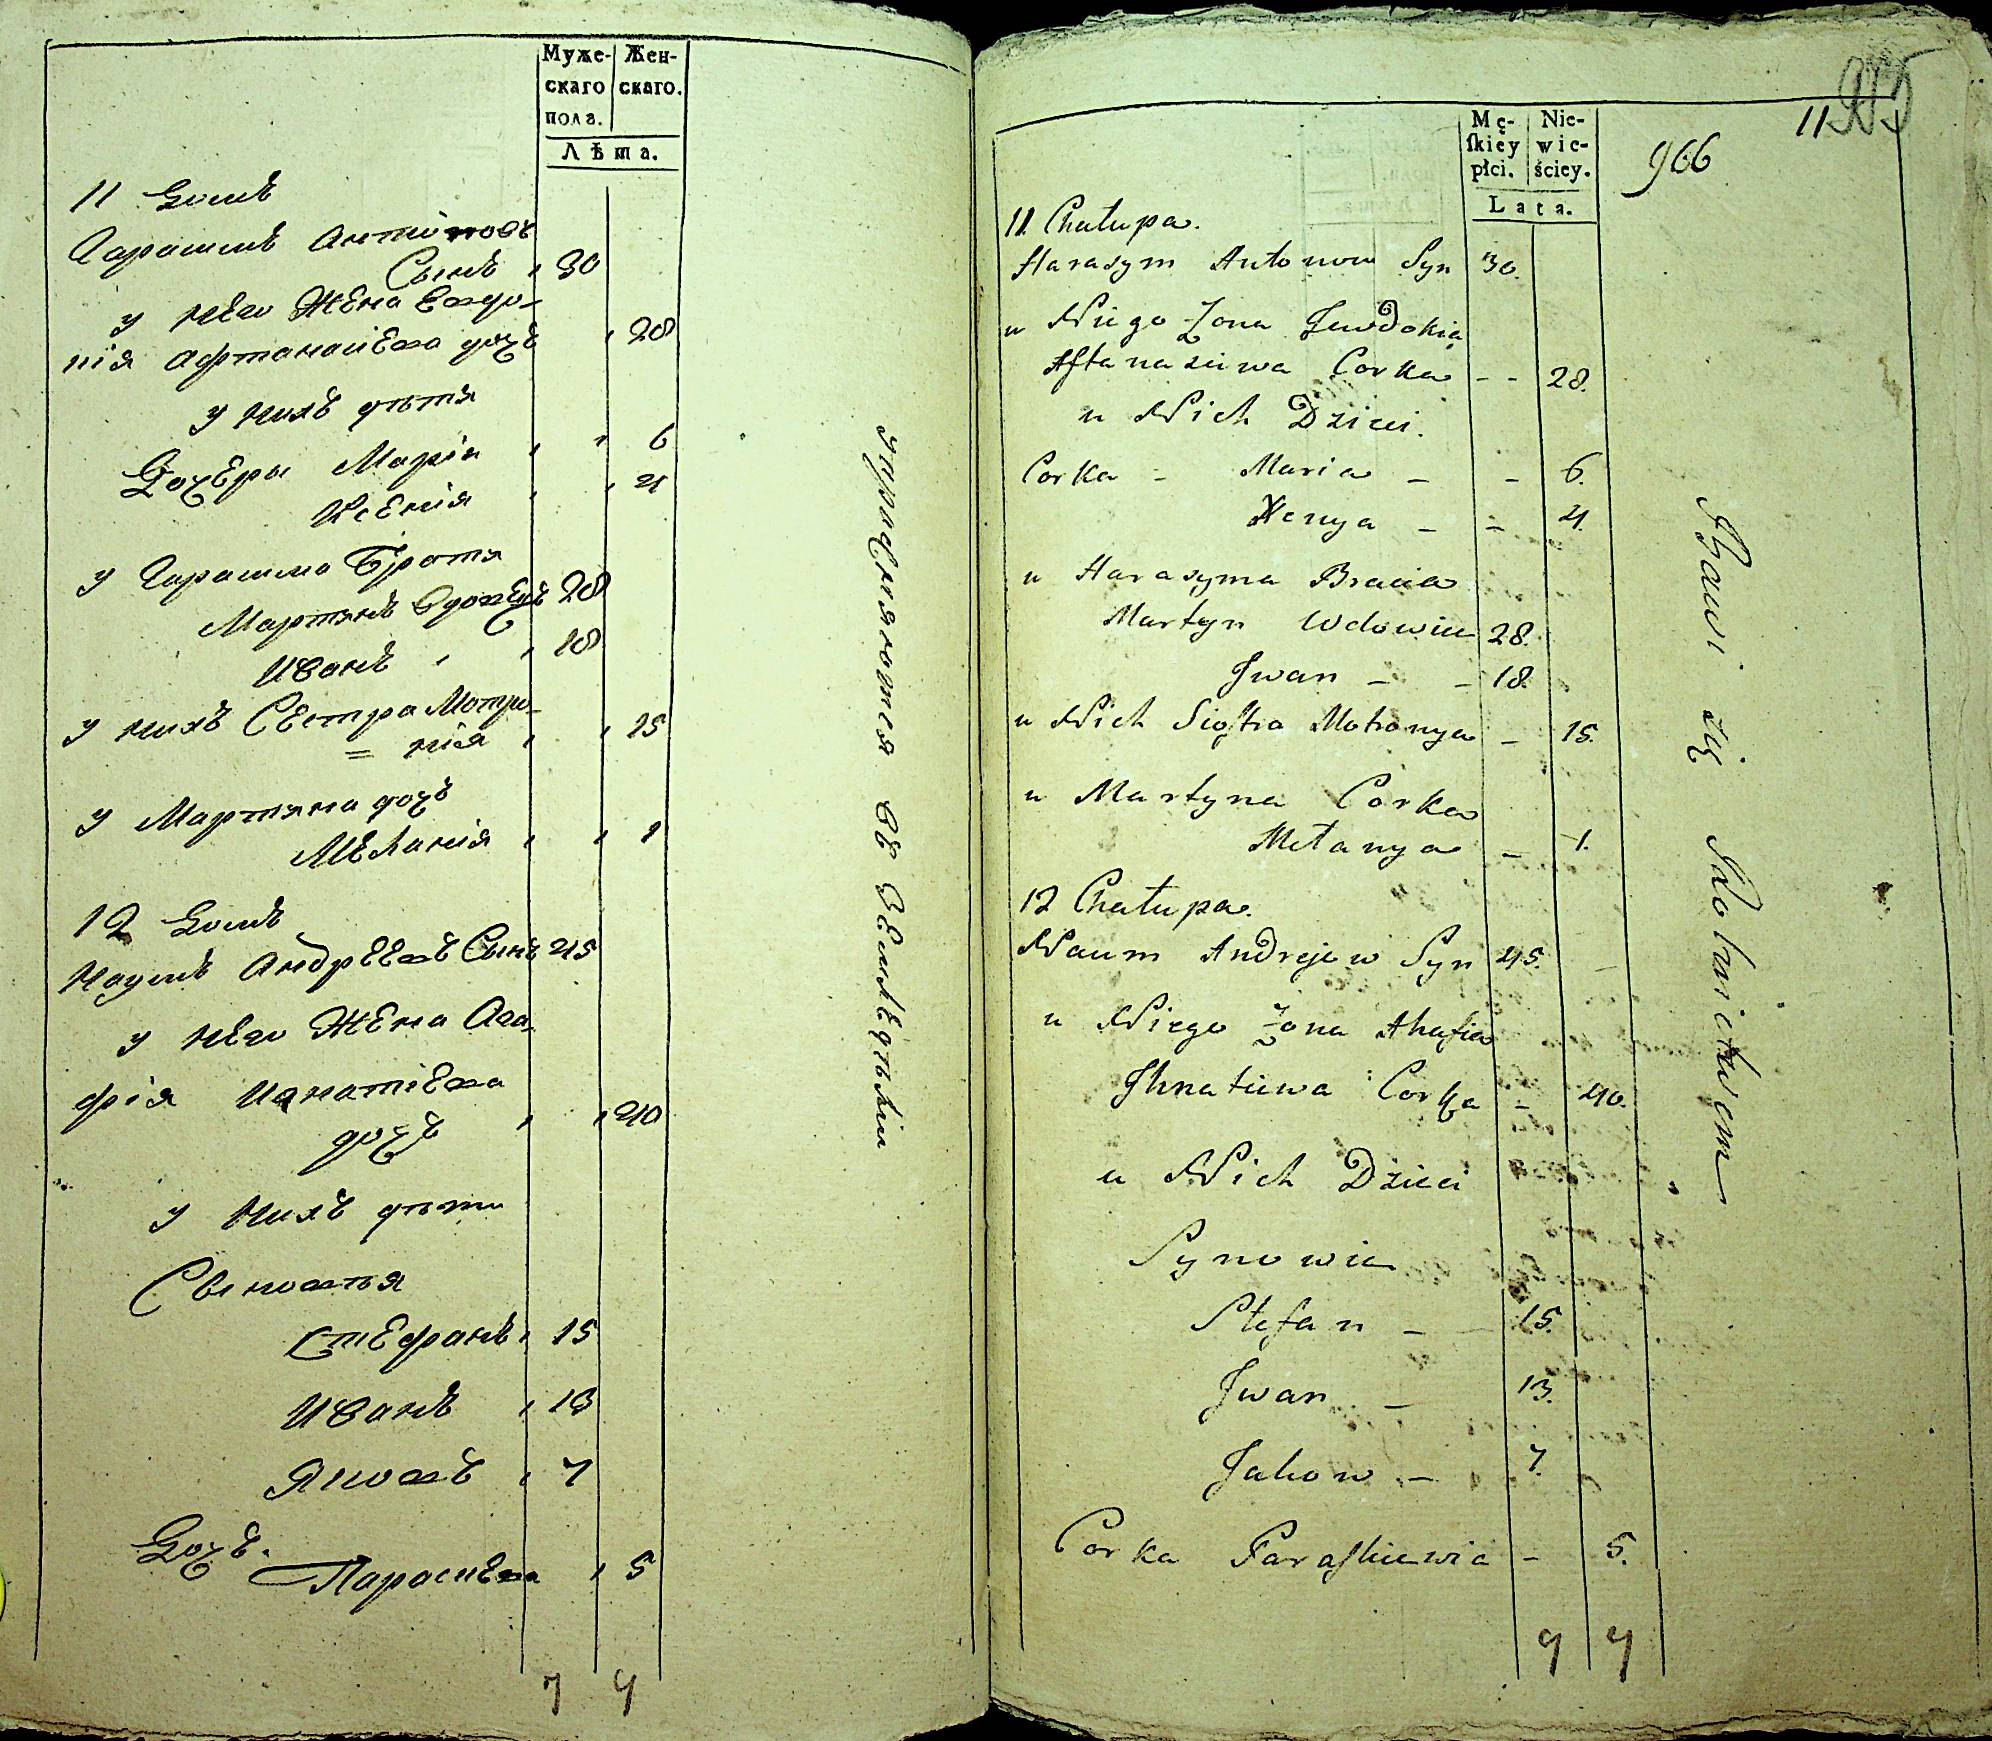 Муже- Жен-
скаго скаго.
пола.
Лѣта.
11 Домъ
Гарасимъ Антоновъ
Сынъ 30
у него Жена Евдо-
кія Афтанасіева дочь 28
у нихъ дѣтя
Дочеры Марія 6
Ксенія 4
у Гарасима Братя
Мартинъ Вдовецъ 28
Иванъ 18
у нихъ Сестра Мотро-
= нія 15
у Мартина дочь
Меланія 1
12 Домъ
Наумъ Андреевъ Сынъ 45
у него Жена Ага-
фія Игнатіева
дочь 40
у нихъ дѣти
Сыновья
Стефанъ 15
Иванъ 13
Яковъ 7
Дочь.
Параскева 5
7 7
упражняются въ Земледѣліи
Mę- Nie-
skiey wie-
płci. ściey.
Lata.
966
11
11. Chałupa.
Harasym Antonow Syn 30.
u Niego Żona Jewdokia
Aftanaziewa Corka - - 28.
u Nich Dzieci.
Corka - Maria - - 6.
Xenya - - 4.
u Harasyma Bracia
Martyn Wdowiec 28.
Jwan - - 18.
u Nich Siostra Motronya - 15.
u Martyna Corka
Mełanya - 1.
12 Chałupa.
Naum Andrejew Syn 45.
u Niego Żona Ahafia
Jhnatiewa Corka - 40.
u Nich Dzieci
Synowie
Stefan - 15.
Jwan - 13.
Jakow - 7.
Corka Paraskiewia - 5.
7 7
Bawi się Rolnictwem